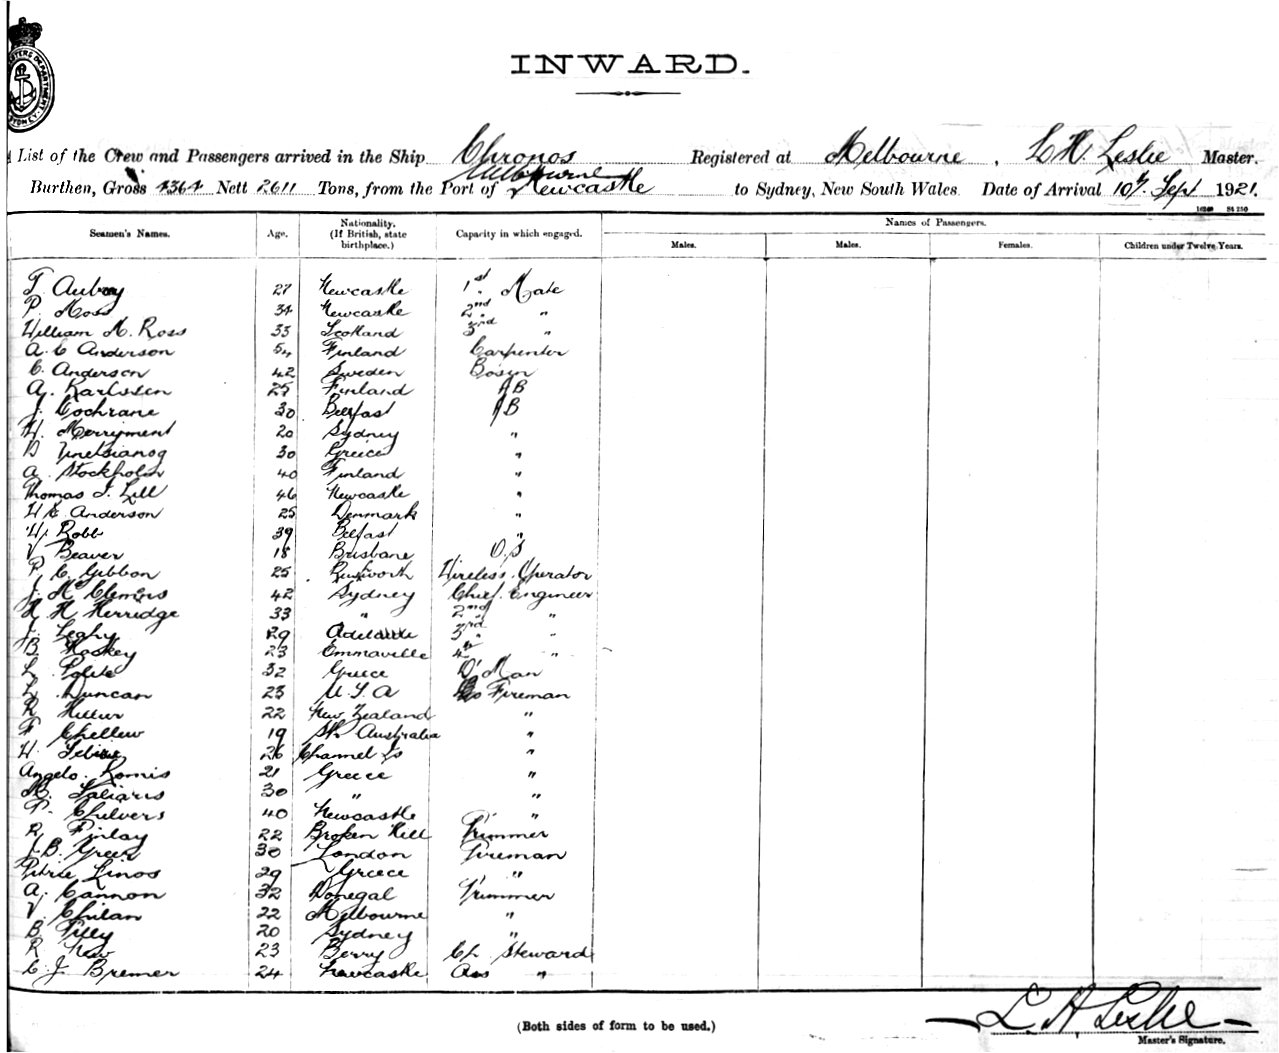 INWARD.
List of the Crew and Passengers arrived in the Ship Chronos Registered at Melbourne, L H. Leslie Master.
Melbourne
Burthen, Gross 4364 Nett 2611 Tons, from the Port of Newcastle to Sydney, New South Wales. Date of Arrival 10th Sept 1921.
Seamen's Names. Age. Nationality. (If British, state birthplace.) Capacity in which engaged. Names of Passengers.
Males. Males. Females. Children under Twelve Years.
T. Aubrey 27 Newcastle 1st Mate
P. Moss 34 Newcastle 2nd "
William M. Ross 33 Scotland 3rd "
A. C Anderson 54 Finland Carpenter
C. Anderson 42 Sweden Bosun
A. Karlssen 25 Finland AB
J. Cochrane 30 Belfast AB
H. Merryment 20 Sydney "
D 30 Greece "
A. Stockholm 40 Finland "
Thomas J. Lill 46 Newcastle "
H E Anderson 25 Denmark "
W. Robb 39 Belfast "
V Beaver 18 Brisbane O.S
P. C. Gibbon 25 Wireless Operator
J. Mc Clemens 42 Sydney Chief Engineer
H H Herridge 33 " 2nd "
J. Leahy 29 Adelaide 3rd "
B. Hoskey 23 Emmaville 4th "
L. Polite 32 Greece D' Man
L. Duncan 23 U.S.A Fireman
R Hillier 22 New Zealand "
F Chellew 19 Sth Australia "
H. 26 Channel Is "
Angelo. Romis 21 Greece "
M. Saliaris 30 " "
P. Chilvers 40 Newcastle "
R. Finlay 22 Broken Hill Trimmer
J. B. Greer 30 London Fireman
Petrie Linos 29 Greece "
A. Cannon 32 Donegal Trimmer
V. Chilan 22 Melbourne "
B. Tilly 20 Sydney "
R. New 23 Berry Ch Steward
C. J. Bremer 24 Newcastle Ass "
(Both sides of form to be used.)
L. H. Leslie
Master's Signature.